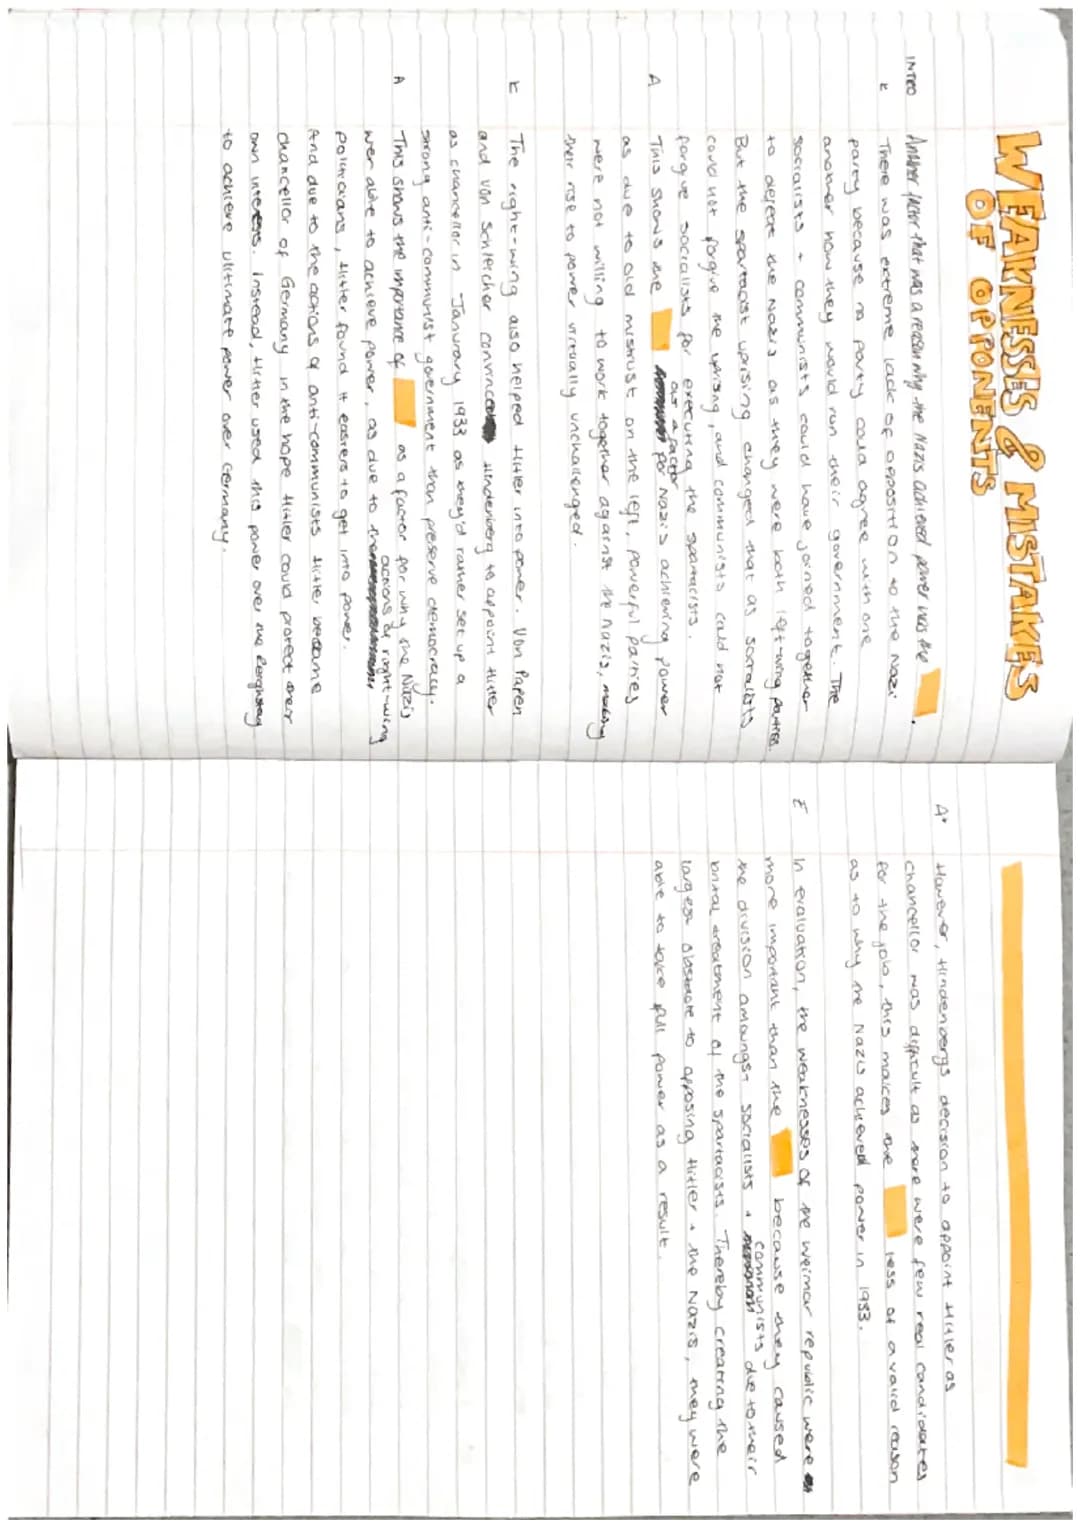 WEAKNESSES & MISTAKES
OF OPPONENTS
INTRO Another factor that was a reason why the Nazis achieved power was the .
K There was extreme lack of opposition to the Nazi
party because no party could agree with one
another how they would run their government. The
socialists + communists could have joined together
to defeat the Nazis as they were both left-wing parties.
But the spartacist uprising changed that as socialists
could not forgive the uprising, and communists could not
forgive socialists for executing the spartacists.
as a factor
A This shows the for Nazis achieving power
as due to old mistrust on the left, powerful parties
were not willing to work together against the Nazis, making
their rise to power virtually unchallenged.
K The right-wing also helped Hitler into power. Von Papen
and von Schleicher convinced Hindenberg to appoint Hitler
as chancellor in Janurary 1933 as they'd rather set up a
strong anti-communist government than preserve democracy.
A This shows the importance of as a factor for why the Nazis
actions of right-wing
wer able to achieve power, as due to
politicians, Hitler found it easiers to get into power.
And due to the actions of anti-communists Hitler became
chancellor of Germany in the hope Hitler could protect their
own interests. Instead, Hitler used this power over the Reighstag
to achieve ultimate power over Germany.
A• However, Hindenbergs decision to appoint Hitler as
chancellor was difficult as there were few real candidates
for the job, this makes the less of a valid reason
as to why the Nazis achieved power in 1933.
E In evaluation, the weaknesses of the weimar republic were
more important than the because they caused
communists
the division amoungst socialists + due to their
brutal treatment of the spartacists. Thereby creating the
largest obstacle to opposing Hitler + the Nazis, they were
able to take full power as a result.